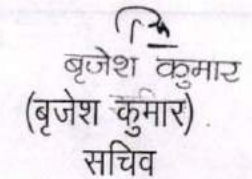 बृजेश कुमार
(बृजेश कुमार)
सचिव